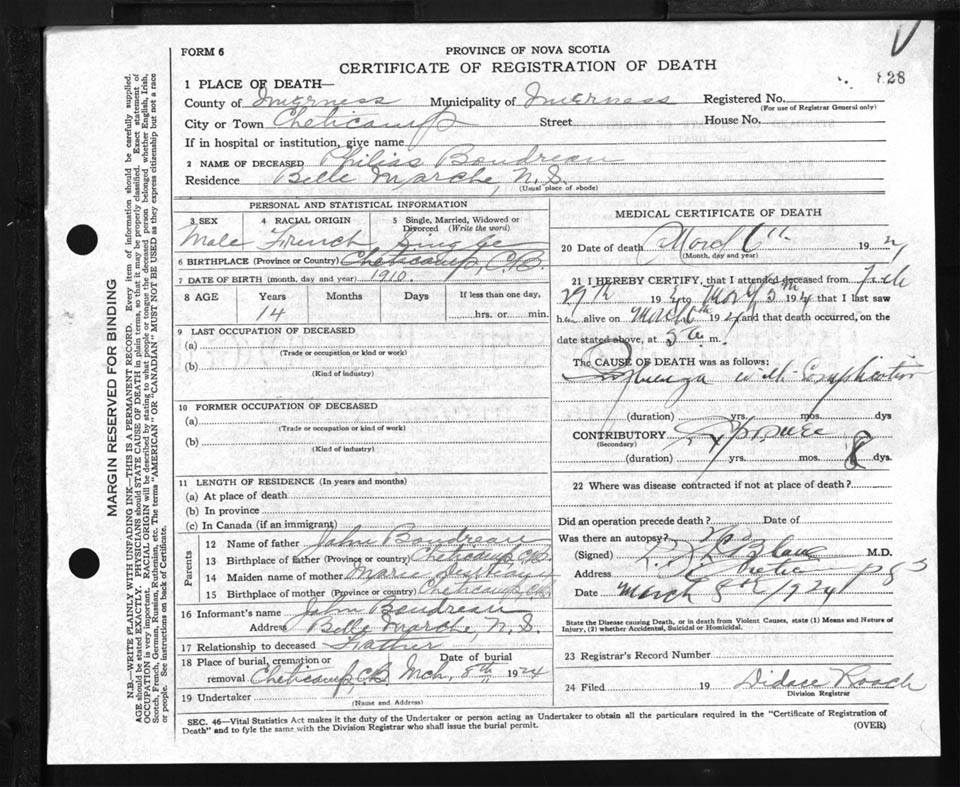 FORM 6
PROVINCE OF NOVA SCOTIA
CERTIFICATE OF REGISTRATION OF DEATH
828
1 PLACE OF DEATH—
County of Inverness Municipality of Inverness Registered No.
(For use of Registrar General only)
City or Town Cheticamp Street House No.
If in hospital or institution, give name
2 NAME OF DECEASED Philias Boudreau
Residence Belle Marche, N.S.
(Usual place of abode)
PERSONAL AND STATISTICAL INFORMATION
3 SEX 4 RACIAL ORIGIN 5 Single, Married, Widowed or Divorced (Write the word)
Male French Single
6 BIRTHPLACE (Province or Country) Cheticamp, C.B.
7 DATE OF BIRTH (month, day and year) 1910.
8 AGE Years Months Days If less than one day,
14 hrs. or min.
9 LAST OCCUPATION OF DECEASED
(a)
(Trade or occupation or kind or work)
(b)
(Kind of industry)
10 FORMER OCCUPATION OF DECEASED
(a)
(Trade or occupation or kind of work)
(b)
(Kind of industry)
11 LENGTH OF RESIDENCE (In years and months)
(a) At place of death
(b) In province
(c) In Canada (if an immigrant)
Parents
12 Name of father John Boudreau
13 Birthplace of father (Province or country) Cheticamp, C.B.
14 Maiden name of mother Marie
15 Birthplace of mother (Province or country) Cheticamp, C.B.
16 Informant's name John Boudreau
Address Belle Marche, N.S.
17 Relationship to deceased Father
18 Place of burial, cremation or Date of burial
removal Cheticamp, C.B. Mch. 8th, 1924
19 Undertaker
(Name and Address)
MEDICAL CERTIFICATE OF DEATH
20 Date of death March 6th 1924
(Month, day and year)
21 I HEREBY CERTIFY, that I attended deceased from Feb
29th 1924 to March 5th 1924 that I last saw
him alive on March 6th 1924 and that death occurred, on the
date stated above, at 5 a. m.
The CAUSE OF DEATH was as follows:
Influenza with Complication
(duration) yrs. mos. dys
CONTRIBUTORY Exposure
(Secondary)
(duration) yrs. mos. 8 dys.
22 Where was disease contracted if not at place of death?
Did an operation precede death? Date of
Was there an autopsy? No
(Signed) LeBlanc M.D.
Address
Date March 8th 1924
State the Disease causing Death, or in death from Violent Causes, state (1) Means and Nature of
Injury, (2) whether Accidental, Suicidal or Homicidal.
23 Registrar's Record Number
24 Filed 19 Didace Roach
Division Registrar
SEC. 46—Vital Statistics Act makes it the duty of the Undertaker or person acting as Undertaker to obtain all the particulars required in the "Certificate of Registration of
Death" and to fyle the same with the Division Registrar who shall issue the burial permit. (OVER)
MARGIN RESERVED FOR BINDING
N.B.—WRITE PLAINLY WITH UNFADING INK—THIS IS A PERMANENT RECORD. Every item of information should be carefully supplied.
AGE should be stated EXACTLY. PHYSICIANS should STATE CAUSE OF DEATH in plain terms, so that it may be properly classified. Exact statement of
OCCUPATION is very important. RACIAL ORIGIN will be described by stating to what people or tongue the deceased person belonged whether English, Irish,
Scotch, French, German, Russian, Ruthenian, etc. The terms "AMERICAN" OR "CANADIAN" MUST NOT BE USED as they express citizenship but not a race
or people. See instructions on back of Certificate.